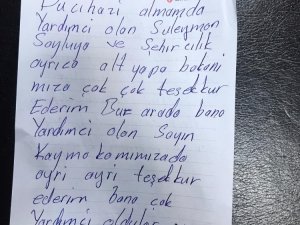 Bu cihazi almamda
Yardimci olan Süleyman
Soyluya ve Şehircilik
ayrica alt yapı bakani
mıza çok çok teşekkur
Ederim Bu arada bana
Yardimci olan Sayın
Kaymakamımızada
ayri ayri teşekkur
ederim bana çok
Yardimci oldular